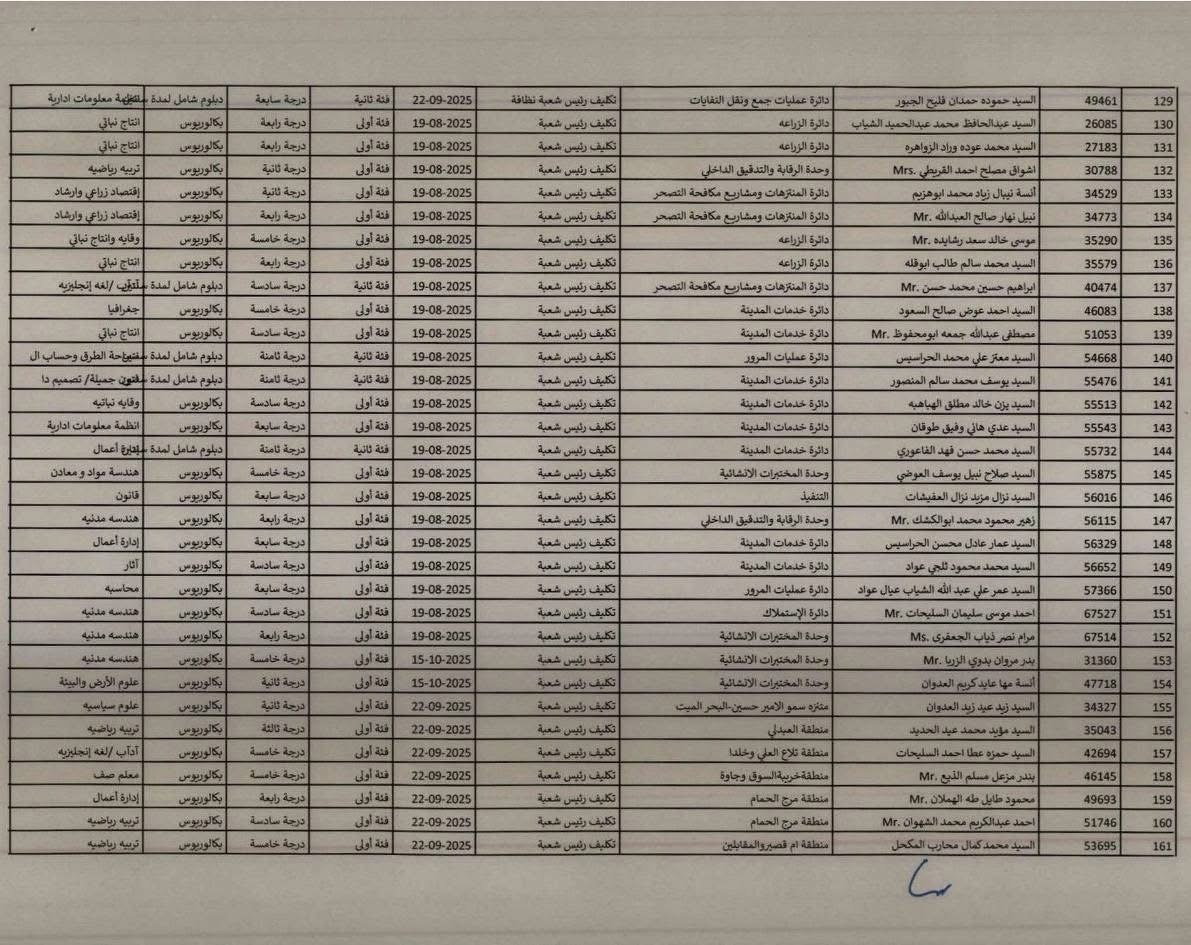 129 49461 السيد حموده حمدان فليح الجبور دائرة عمليات جمع ونقل النفايات تكليف رئيس شعبة نظافة 22-09-2025 فئة ثانية درجة سابعة دبلوم شامل لمدة معلومات ادارية
130 26085 السيد عبدالحافظ محمد عبدالحميد الشياب دائرة الزراعه تكليف رئيس شعبة 19-08-2025 فئة أولى درجة رابعة بكالوريوس انتاج نباتي
131 27183 السيد محمد عوده وراد الزواهره دائرة الزراعه تكليف رئيس شعبة 19-08-2025 فئة أولى درجة رابعة بكالوريوس انتاج نباتي
132 30788 اشواق مصلح احمد القريطي .Mrs وحدة الرقابة والتدقيق الداخلي تكليف رئيس شعبة 19-08-2025 فئة أولى درجة ثانية بكالوريوس تربيه رياضيه
133 34529 أنسة نيبال زياد محمد ابوهزيم دائرة المنتزهات ومشاريع مكافحة التصحر تكليف رئيس شعبة 19-08-2025 فئة أولى درجة ثانية بكالوريوس إقتصاد زراعي وارشاد
134 34773 نبيل نهار صالح العبدالله .Mr دائرة المنتزهات ومشاريع مكافحة التصحر تكليف رئيس شعبة 19-08-2025 فئة أولى درجة رابعة بكالوريوس إقتصاد زراعي وارشاد
135 35290 موسى خالد سعد رشايده .Mr دائرة الزراعه تكليف رئيس شعبة 19-08-2025 فئة أولى درجة خامسة بكالوريوس وقايه وانتاج نباتي
136 35579 السيد محمد سالم طالب ابوقله دائرة الزراعه تكليف رئيس شعبة 19-08-2025 فئة أولى درجة رابعة بكالوريوس انتاج نباتي
137 40474 ابراهيم حسين محمد حسن .Mr دائرة المنتزهات ومشاريع مكافحة التصحر تكليف رئيس شعبة 19-08-2025 فئة ثانية درجة سادسة دبلوم شامل لمدة /لغه إنجليزيه
138 46083 السيد احمد عوض صالح السعود دائرة خدمات المدينة تكليف رئيس شعبة 19-08-2025 فئة أولى درجة خامسة بكالوريوس جغرافيا
139 51053 مصطفى عبدالله جمعه ابومحفوظ .Mr دائرة خدمات المدينة تكليف رئيس شعبة 19-08-2025 فئة أولى درجة سادسة بكالوريوس انتاج نباتي
140 54668 السيد معتز علي محمد الحراسيس دائرة عمليات المرور تكليف رئيس شعبة 19-08-2025 فئة ثانية درجة ثامنة دبلوم شامل لمدة الطرق وحساب ال
141 55476 السيد يوسف محمد سالم المنصور دائرة خدمات المدينة تكليف رئيس شعبة 19-08-2025 فئة ثانية درجة ثامنة دبلوم شامل لمدة جميلة/ تصميم دا
142 55513 السيد يزن خالد مطلق الهباهبه دائرة خدمات المدينة تكليف رئيس شعبة 19-08-2025 فئة أولى درجة سادسة بكالوريوس وقايه نباتيه
143 55543 السيد عدي هاني وفيق طوقان دائرة خدمات المدينة تكليف رئيس شعبة 19-08-2025 فئة أولى درجة سابعة بكالوريوس انظمة معلومات ادارية
144 55732 السيد محمد حسن فهد الفاعوري دائرة خدمات المدينة تكليف رئيس شعبة 19-08-2025 فئة ثانية درجة ثامنة دبلوم شامل لمدة أعمال
145 55875 السيد صلاح نبيل يوسف العوضي وحدة المختبرات الانشائية تكليف رئيس شعبة 19-08-2025 فئة أولى درجة خامسة بكالوريوس هندسة مواد و معادن
146 56016 السيد نزال مزيد نزال العفيشات التنفيذ تكليف رئيس شعبة 19-08-2025 فئة أولى درجة سابعة بكالوريوس قانون
147 56115 زهير محمود محمد ابوالكشك .Mr وحدة الرقابة والتدقيق الداخلي تكليف رئيس شعبة 19-08-2025 فئة أولى درجة رابعة بكالوريوس هندسه مدنيه
148 56329 السيد عمار عادل محسن الحراسيس دائرة خدمات المدينة تكليف رئيس شعبة 19-08-2025 فئة أولى درجة سابعة بكالوريوس إدارة أعمال
149 56652 السيد محمد محمود ثلجي عواد دائرة خدمات المدينة تكليف رئيس شعبة 19-08-2025 فئة أولى درجة سادسة بكالوريوس آثار
150 57366 السيد عمر علي عبد الله الشياب عيال عواد دائرة عمليات المرور تكليف رئيس شعبة 19-08-2025 فئة أولى درجة سابعة بكالوريوس محاسبه
151 67527 احمد موسى سليمان السليحات .Mr دائرة الإستملاك تكليف رئيس شعبة 19-08-2025 فئة أولى درجة سادسة بكالوريوس هندسه مدنيه
152 67514 مرام نصر ذياب الجعفرى .Ms وحدة المختبرات الانشائية تكليف رئيس شعبة 19-08-2025 فئة أولى درجة رابعة بكالوريوس هندسه مدنيه
153 31360 بدر مروان بدوي الزربا .Mr وحدة المختبرات الانشائية تكليف رئيس شعبة 15-10-2025 فئة أولى درجة خامسة بكالوريوس هندسه مدنيه
154 47718 أنسة مها عايد كريم العدوان وحدة المختبرات الانشائية تكليف رئيس شعبة 15-10-2025 فئة أولى درجة ثانية بكالوريوس علوم الأرض والبيئة
155 34327 السيد زيد عيد زيد العدوان منتزه سمو الامير حسين-البحر الميت تكليف رئيس شعبة 22-09-2025 فئة أولى درجة ثانية بكالوريوس علوم سياسيه
156 35043 السيد مؤيد محمد عيد الحديد منطقة العبدلي تكليف رئيس شعبة 22-09-2025 فئة أولى درجة ثالثة بكالوريوس تربيه رياضيه
157 42694 السيد حمزه عطا احمد السليحات منطقة تلاع العلي وخلدا تكليف رئيس شعبة 22-09-2025 فئة أولى درجة خامسة بكالوريوس آدآب /لغه إنجليزيه
158 46145 بندر مزعل مسلم الذيع .Mr منطقةخريبةالسوق وجاوة تكليف رئيس شعبة 22-09-2025 فئة أولى درجة خامسة بكالوريوس معلم صف
159 49693 محمود طايل طه الهملان .Mr منطقة مرج الحمام تكليف رئيس شعبة 22-09-2025 فئة أولى درجة رابعة بكالوريوس إدارة أعمال
160 51746 احمد عبدالكريم محمد الشهوان .Mr منطقة مرج الحمام تكليف رئيس شعبة 22-09-2025 فئة أولى درجة سادسة بكالوريوس تربيه رياضيه
161 53695 السيد محمد كمال محارب المكحل منطقة ام قصيروالمقابلين تكليف رئيس شعبة 22-09-2025 فئة أولى درجة خامسة بكالوريوس تربيه رياضيه